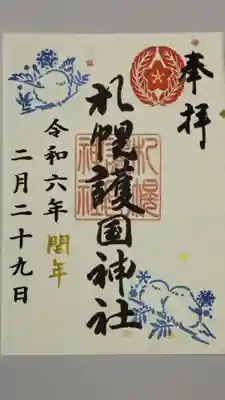 奉拝
札幌護国神社
札幌護国神社
令和六年 閏年
二月二十九日